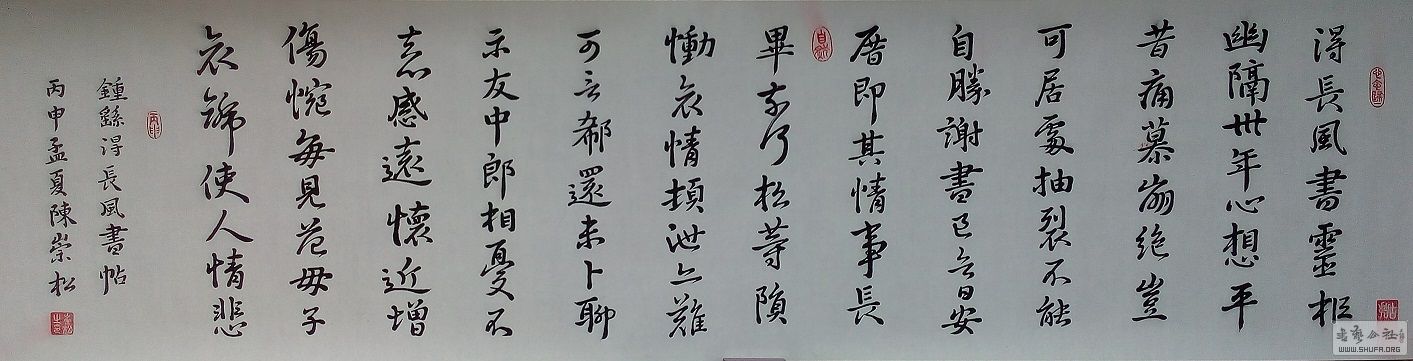 得長風書靈柩
幽隔卅年心想平
昔痛慕崩絶豈
可居處抽裂不能
自勝謝書已安
厝即其情事長
畢奈何松等隕
慟哀情頓泄亦難
可言郗還未卜聊
示友中郎相憂不
忘感遠懷近增
傷惋每見范母子
哀號使人情悲
鍾繇得長風書帖
丙申孟夏陳崇松
书艺公社
WWW.SHUFA.ORG